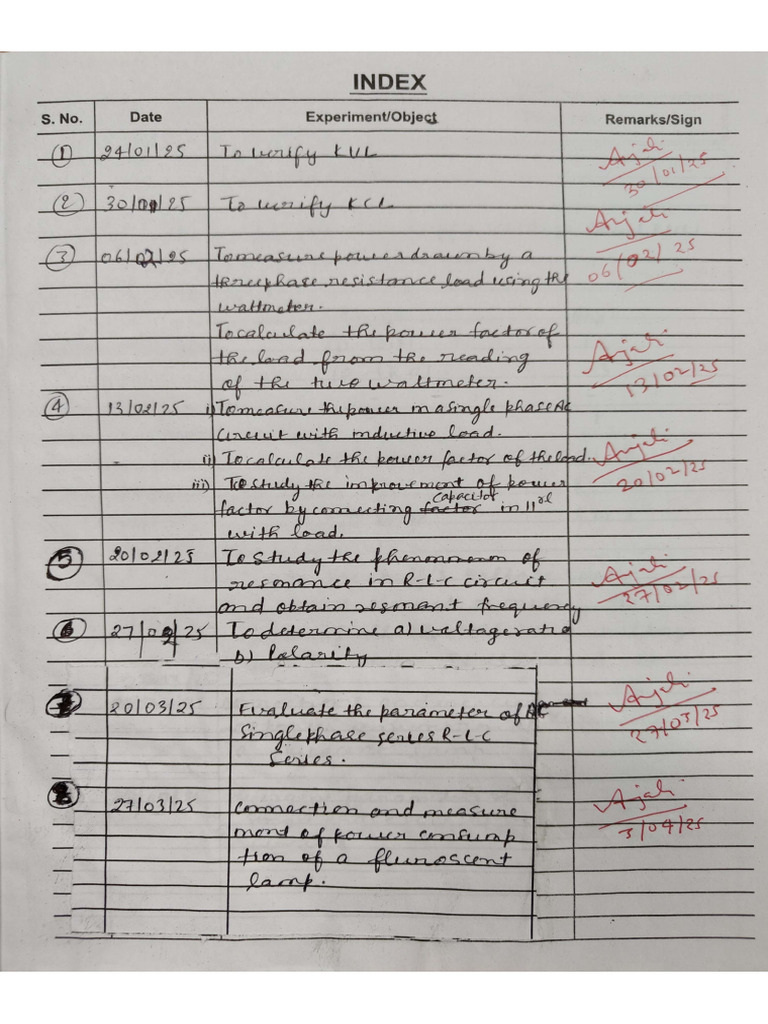 INDEX
S. No. Date Experiment/Object Remarks/Sign
1 24/01/25 To verify KVL Anjali 30/01/25
2 30/01/25 To verify KCL Anjali 06/02/25
3 06/02/25 To measure power drawn by a
three phase resistance load using the
wattmeter.
To calculate the power factor of
the load from the reading
of the two wattmeter. Anjali 13/02/25
4 13/02/25 i) To measure the power in a single phase AC
circuit with inductive load.
ii) To calculate the power factor of the load. Anjali 20/02/25
iii) To study the improvement of power
factor by connecting capacitor in 11rel
with load.
5 20/02/25 To study the phenomenon of
resonance in R-L-C circuit Anjali 27/02/25
and obtain resonant frequency
6 27/02/25 To determine a) voltage ratio
b) Polarity
7 20/03/25 Evaluate the parameter of AC Anjali 27/03/25
single phase series R-L-C
Series.
8 27/03/25 connection and measure Anjali 3/04/25
ment of power consump
tion of a fluroscent
lamp.